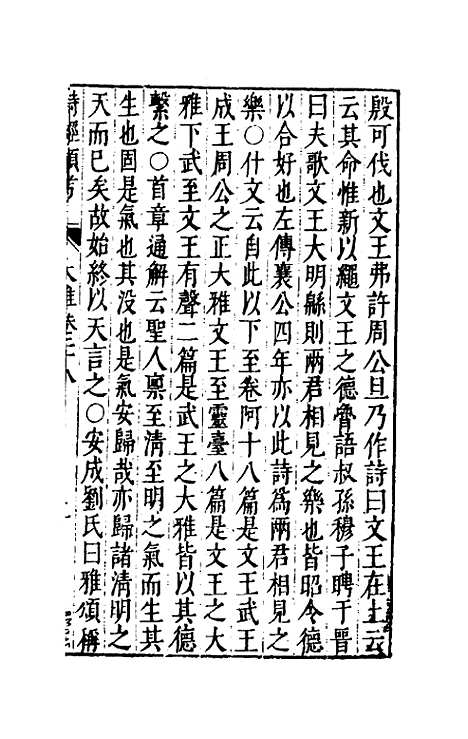 殷可伐也文王弗許周公旦乃作詩曰文王在上云
云其命惟新以繩文王之德魯語叔孫穆子聘于晉
曰夫歌文王大明緜則兩君相見之樂也皆昭令德
以合好也左傳襄公四年亦以此詩爲兩君相見之
樂○什文云自此以下至卷阿十八篇是文王武王
成王周公之正大雅文王至靈臺八篇是文王之大
雅下武至文王有聲二篇是武王之大雅皆以其德
繫之○首章通解云聖人禀至清至明之氣而生其
生也固是氣也其没也是氣安歸哉亦歸諸清明之
天而已矣故始終以天言之○安成劉氏曰雅頌稱
詩經類考
大雅卷二十八